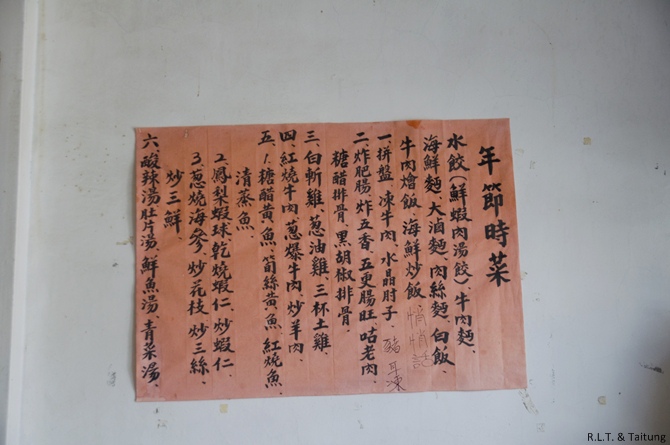 年節時菜
水餃(鮮蝦肉湯餃)、牛肉麵、
海鮮麵、大滷麵、肉絲麵、白飯、
牛肉燴飯、海鮮炒飯 悄悄話
一拼盤、凍牛肉、水晶肘子、豬耳凍
二炸肥腸、炸五香、五更腸旺、咕老肉、
糖醋排骨、黑胡椒排骨、
三、白斬雞、蔥油雞、三杯土雞、
四、紅燒牛肉、蔥爆牛肉、炒羊肉、
五、1.糖醋黃魚、筍絲黃魚、紅燒魚、
清蒸魚、
2.鳳梨蝦球、乾燒蝦仁、炒蝦仁、
3.蔥燒海參、炒花枝、炒三絲、
炒三鮮、
六、酸辣湯、肚片湯、鮮魚湯、青菜湯、
R.L.T. & Taitung